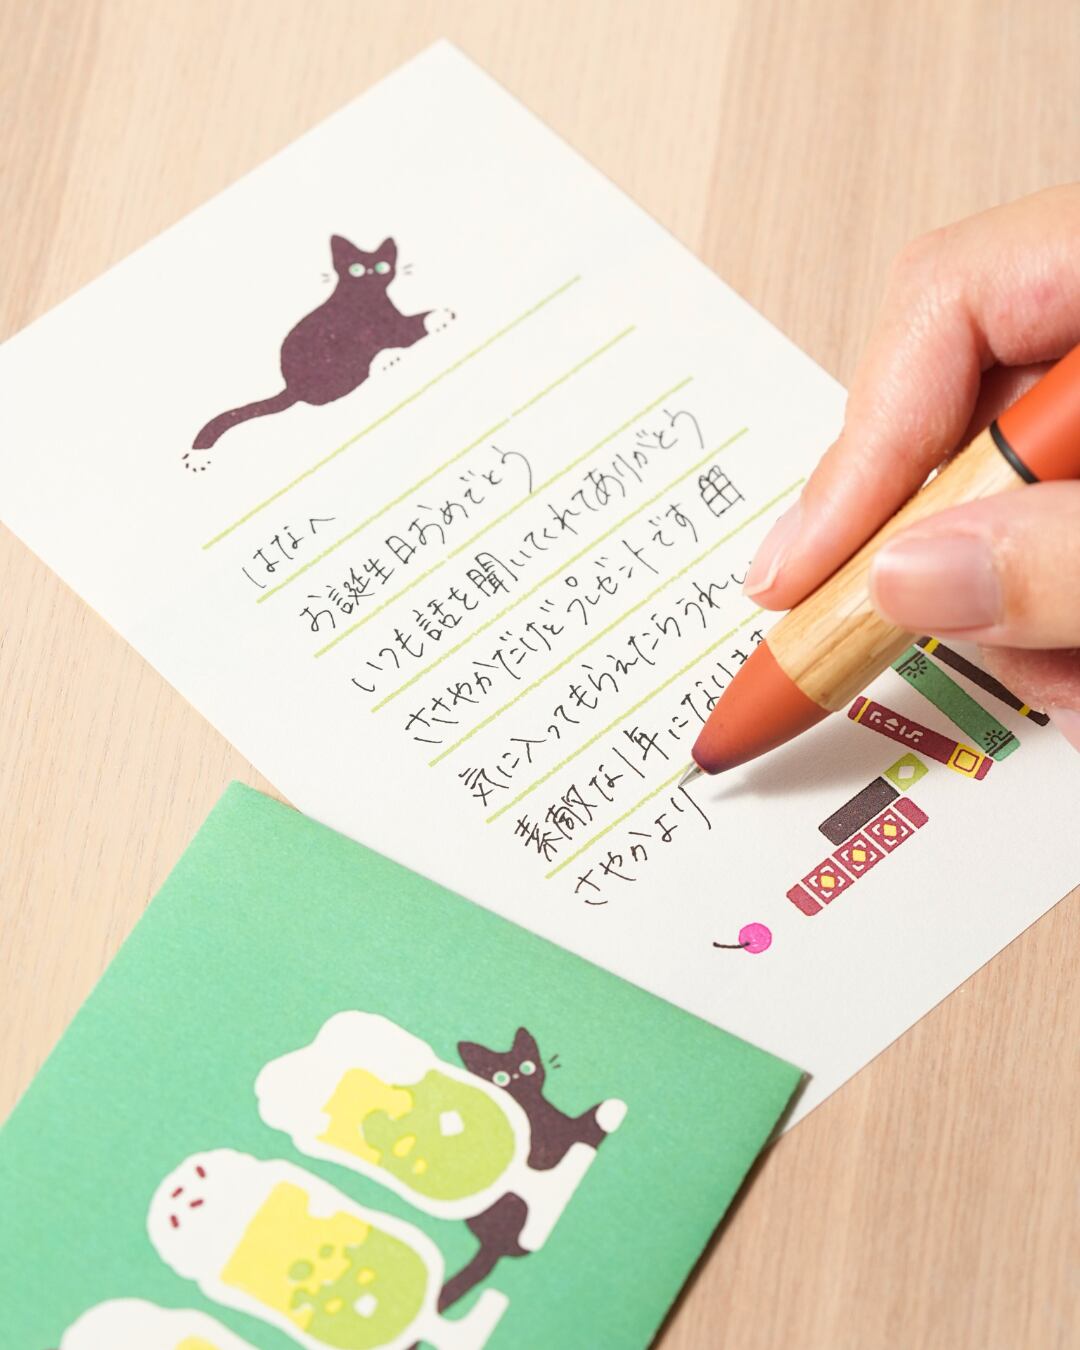 はなへ
お誕生日おめでとう
いつも話を聞いてくれてありがとう
ささやかだけどプレゼントです
気に入ってもらえたらうれし
素敵な1年になります
さやかより